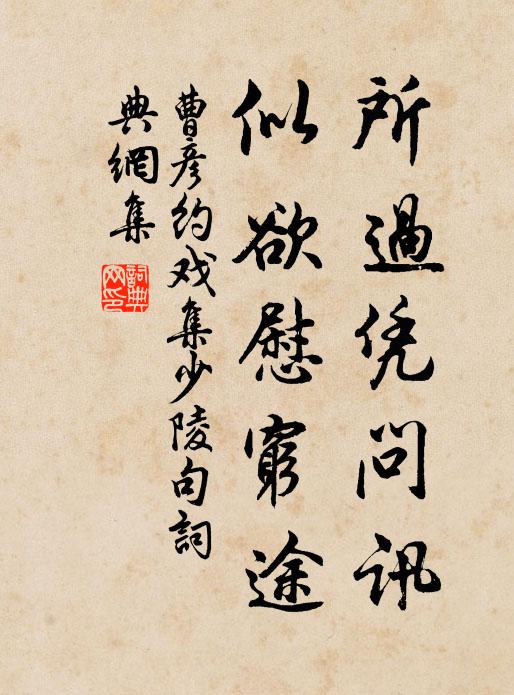 所過凭問訊
似欲慰窮途
曹彦约戏集少陵句詞
典網集
詞典
网印